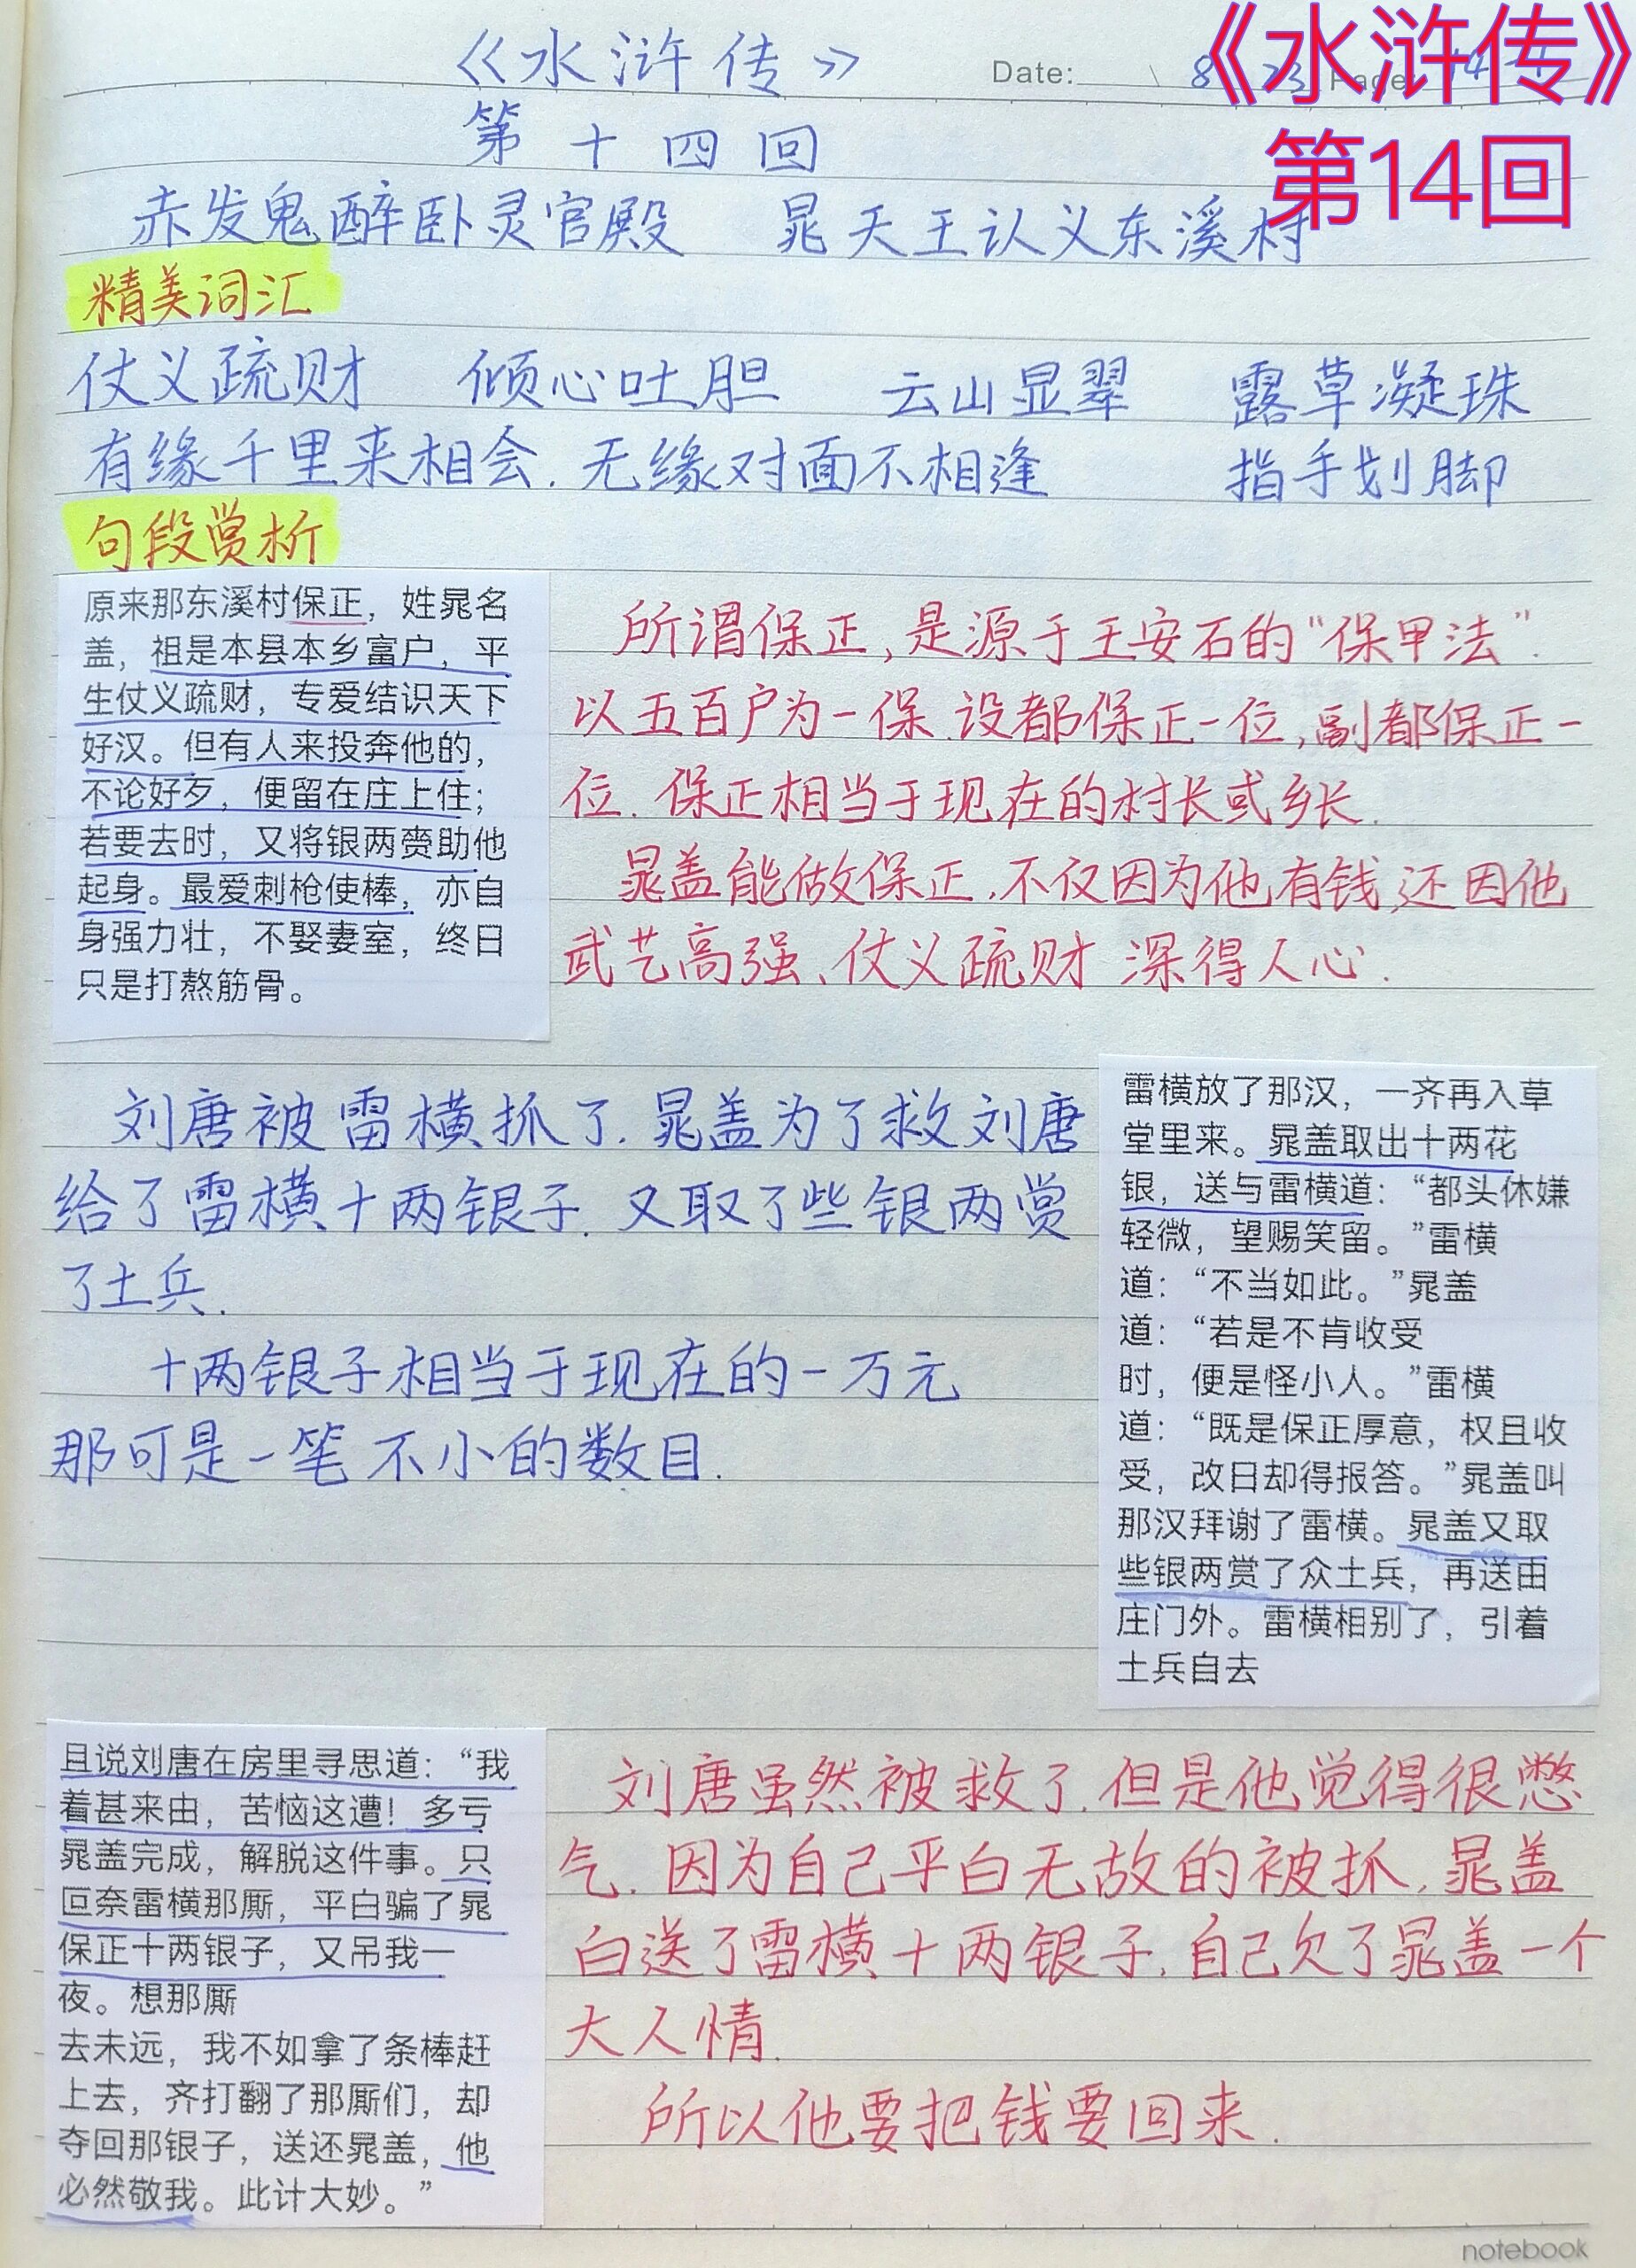 《水浒传》
Date:
《水浒传》
第14回
第十四回
赤发鬼醉卧灵官殿 晁天王认义东溪村
精美词汇
仗义疏财 倾心吐胆 云山显翠 露草凝珠
有缘千里来相会.无缘对面不相逢 指手划脚
句段赏析
原来那东溪村保正，姓晁名
盖，祖是本县本乡富户，平
生仗义疏财，专爱结识天下
好汉。但有人来投奔他的，
不论好歹，便留在庄上住；
若要去时，又将银两赍助他
起身。最爱刺枪使棒，亦自
身强力壮，不娶妻室，终日
只是打熬筋骨。
所谓保正,是源于王安石的"保甲法".
以五百户为一保.设都保正一位,副都保正一
位.保正相当于现在的村长或乡长.
晁盖能做保正.不仅因为他有钱,还因他
武艺高强、仗义疏财 深得人心.
刘唐被雷横抓了.晁盖为了救刘唐
给了雷横十两银子.又取了些银两赏
了土兵.
十两银子相当于现在的一万元
那可是一笔不小的数目.
雷横放了那汉，一齐再入草
堂里来。晁盖取出十两花
银，送与雷横道：“都头休嫌
轻微，望赐笑留。”雷横
道：“不当如此。”晁盖
道：“若是不肯收受
时，便是怪小人。”雷横
道：“既是保正厚意，权且收
受，改日却得报答。”晁盖叫
那汉拜谢了雷横。晁盖又取
些银两赏了众土兵，再送由
庄门外。雷横相别了，引着
土兵自去
且说刘唐在房里寻思道：“我
着甚来由，苦恼这遭！多亏
晁盖完成，解脱这件事。只
叵奈雷横那厮，平白骗了晁
保正十两银子，又吊我一
夜。想那厮
去未远，我不如拿了条棒赶
上去，齐打翻了那厮们，却
夺回那银子，送还晁盖，他
必然敬我。此计大妙。”
刘唐虽然被救了.但是他觉得很憋
气.因为自己平白无故的被抓.晁盖
白送了雷横十两银子.自己欠了晁盖一个
大人情.
所以他要把钱要回来.
notebook